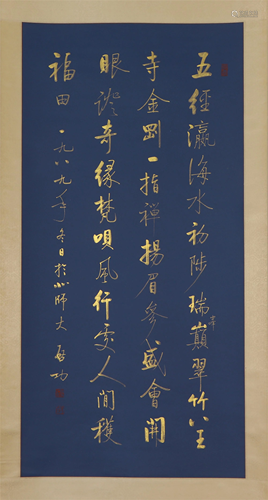 五經瀛海水初陟瑞巔翠竹八王
寺金剛一指禪揚眉參盛會開
眼證奇緣梵唄風行處人間穫
福田 一九八九年冬日於北師大 啟功